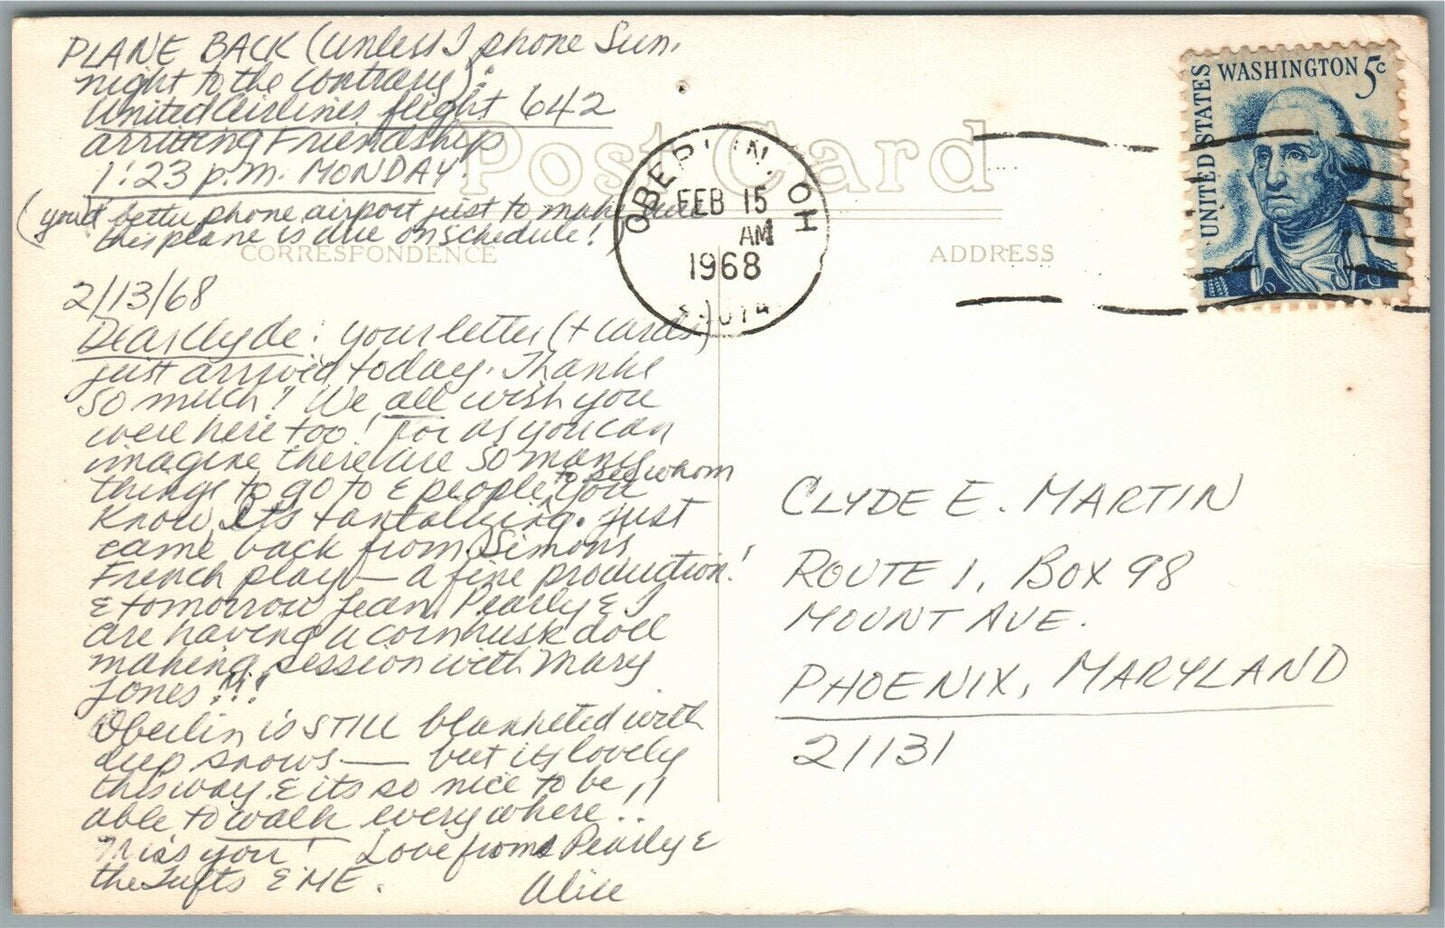 PLANE BACK (unless I phone Sun.
night to the contrary):
United Airlines flight 642
arriving Friendship
1:23 p.m. MONDAY.
(you'd better phone airport just to make sure
this plane is due on schedule!
Post Card
CORRESPONDENCE
ADDRESS
OBERLIN, OH
FEB 15
AM
1968
UNITED STATES
WASHINGTON 5c
2/13/68
Dear Clyde: your letter (+ cards)
just arrived today. Thanks
so much! We all wish you
were here too! For as you can
imagine there are so many
things to go to & people to see whom you
know. It's tantalizing. Just
came back from Simon's
French play — a fine production!
& tomorrow Jean, Pearly & I
are having a cornhusk doll
making session with Mary
Jones!!!
Oberlin is STILL blanketed with
deep snows — but it's lovely
this way & its so nice to be
able to walk everywhere!!
Miss you! Love from Pearly &
the Tufts & ME.
Alice
CLYDE E. MARTIN
ROUTE 1, BOX 98
MOUNT AVE.
PHOENIX, MARYLAND
21131